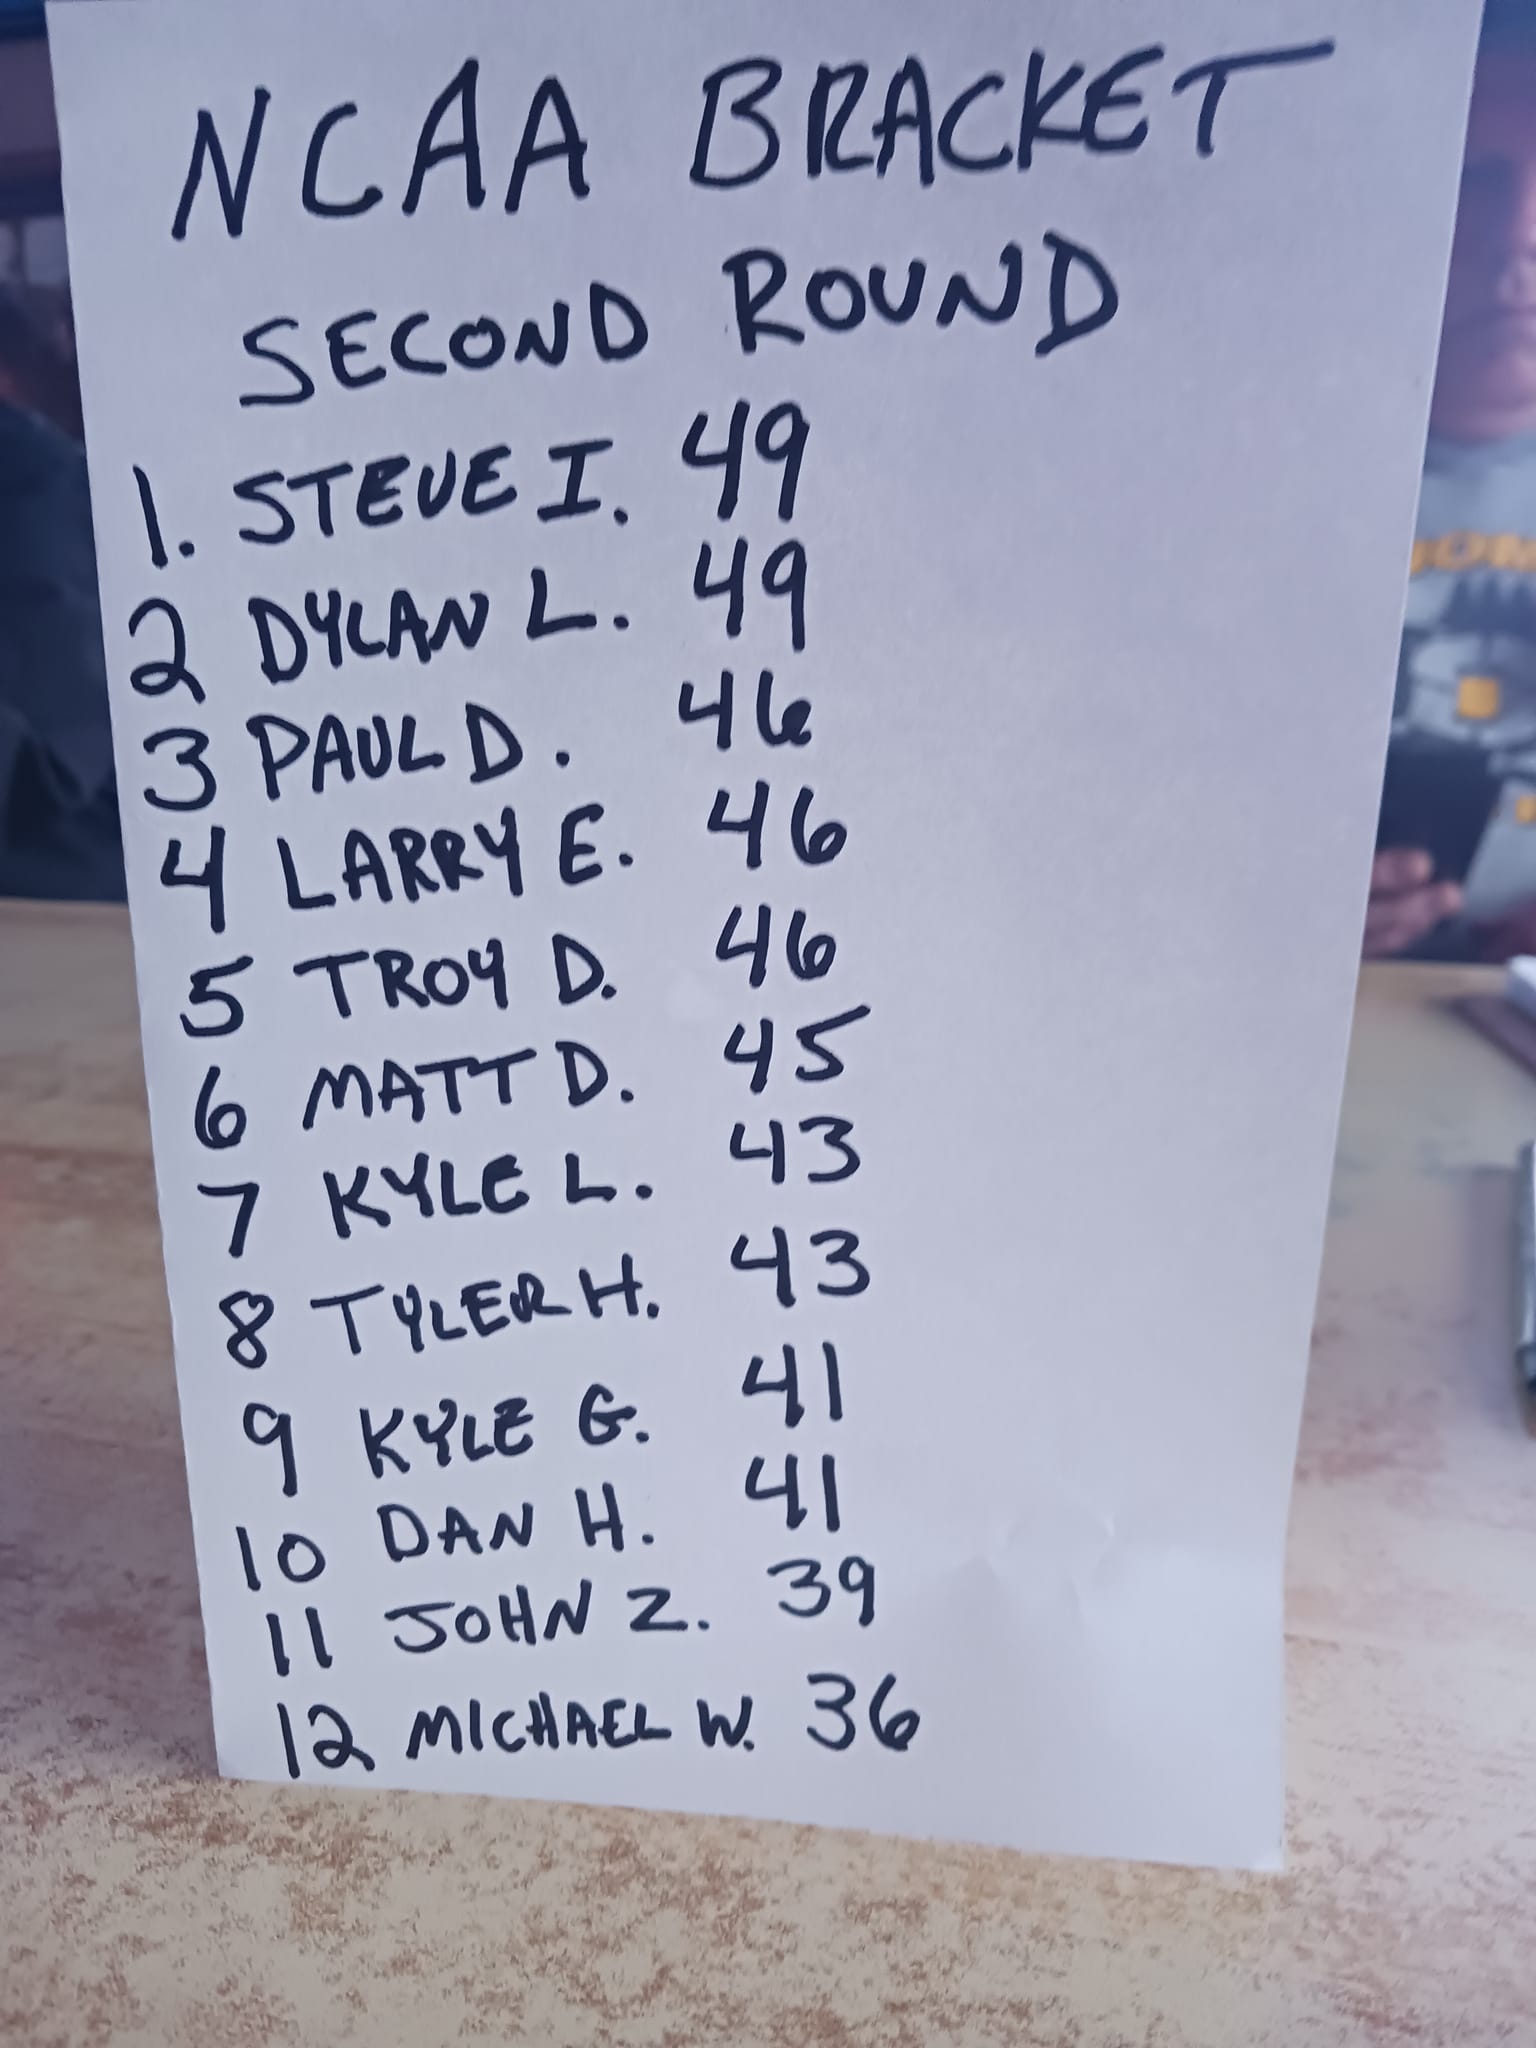 NCAA BRACKET
SECOND ROUND
1. STEVE I. 49
2 DYLAN L. 49
3 PAUL D. 46
4 LARRY E. 46
5 TROY D. 46
6 MATT D. 45
7 KYLE L. 43
8 TYLER H. 43
9 KYLE G. 41
10 DAN H. 41
11 JOHN Z. 39
12 MICHAEL W. 36